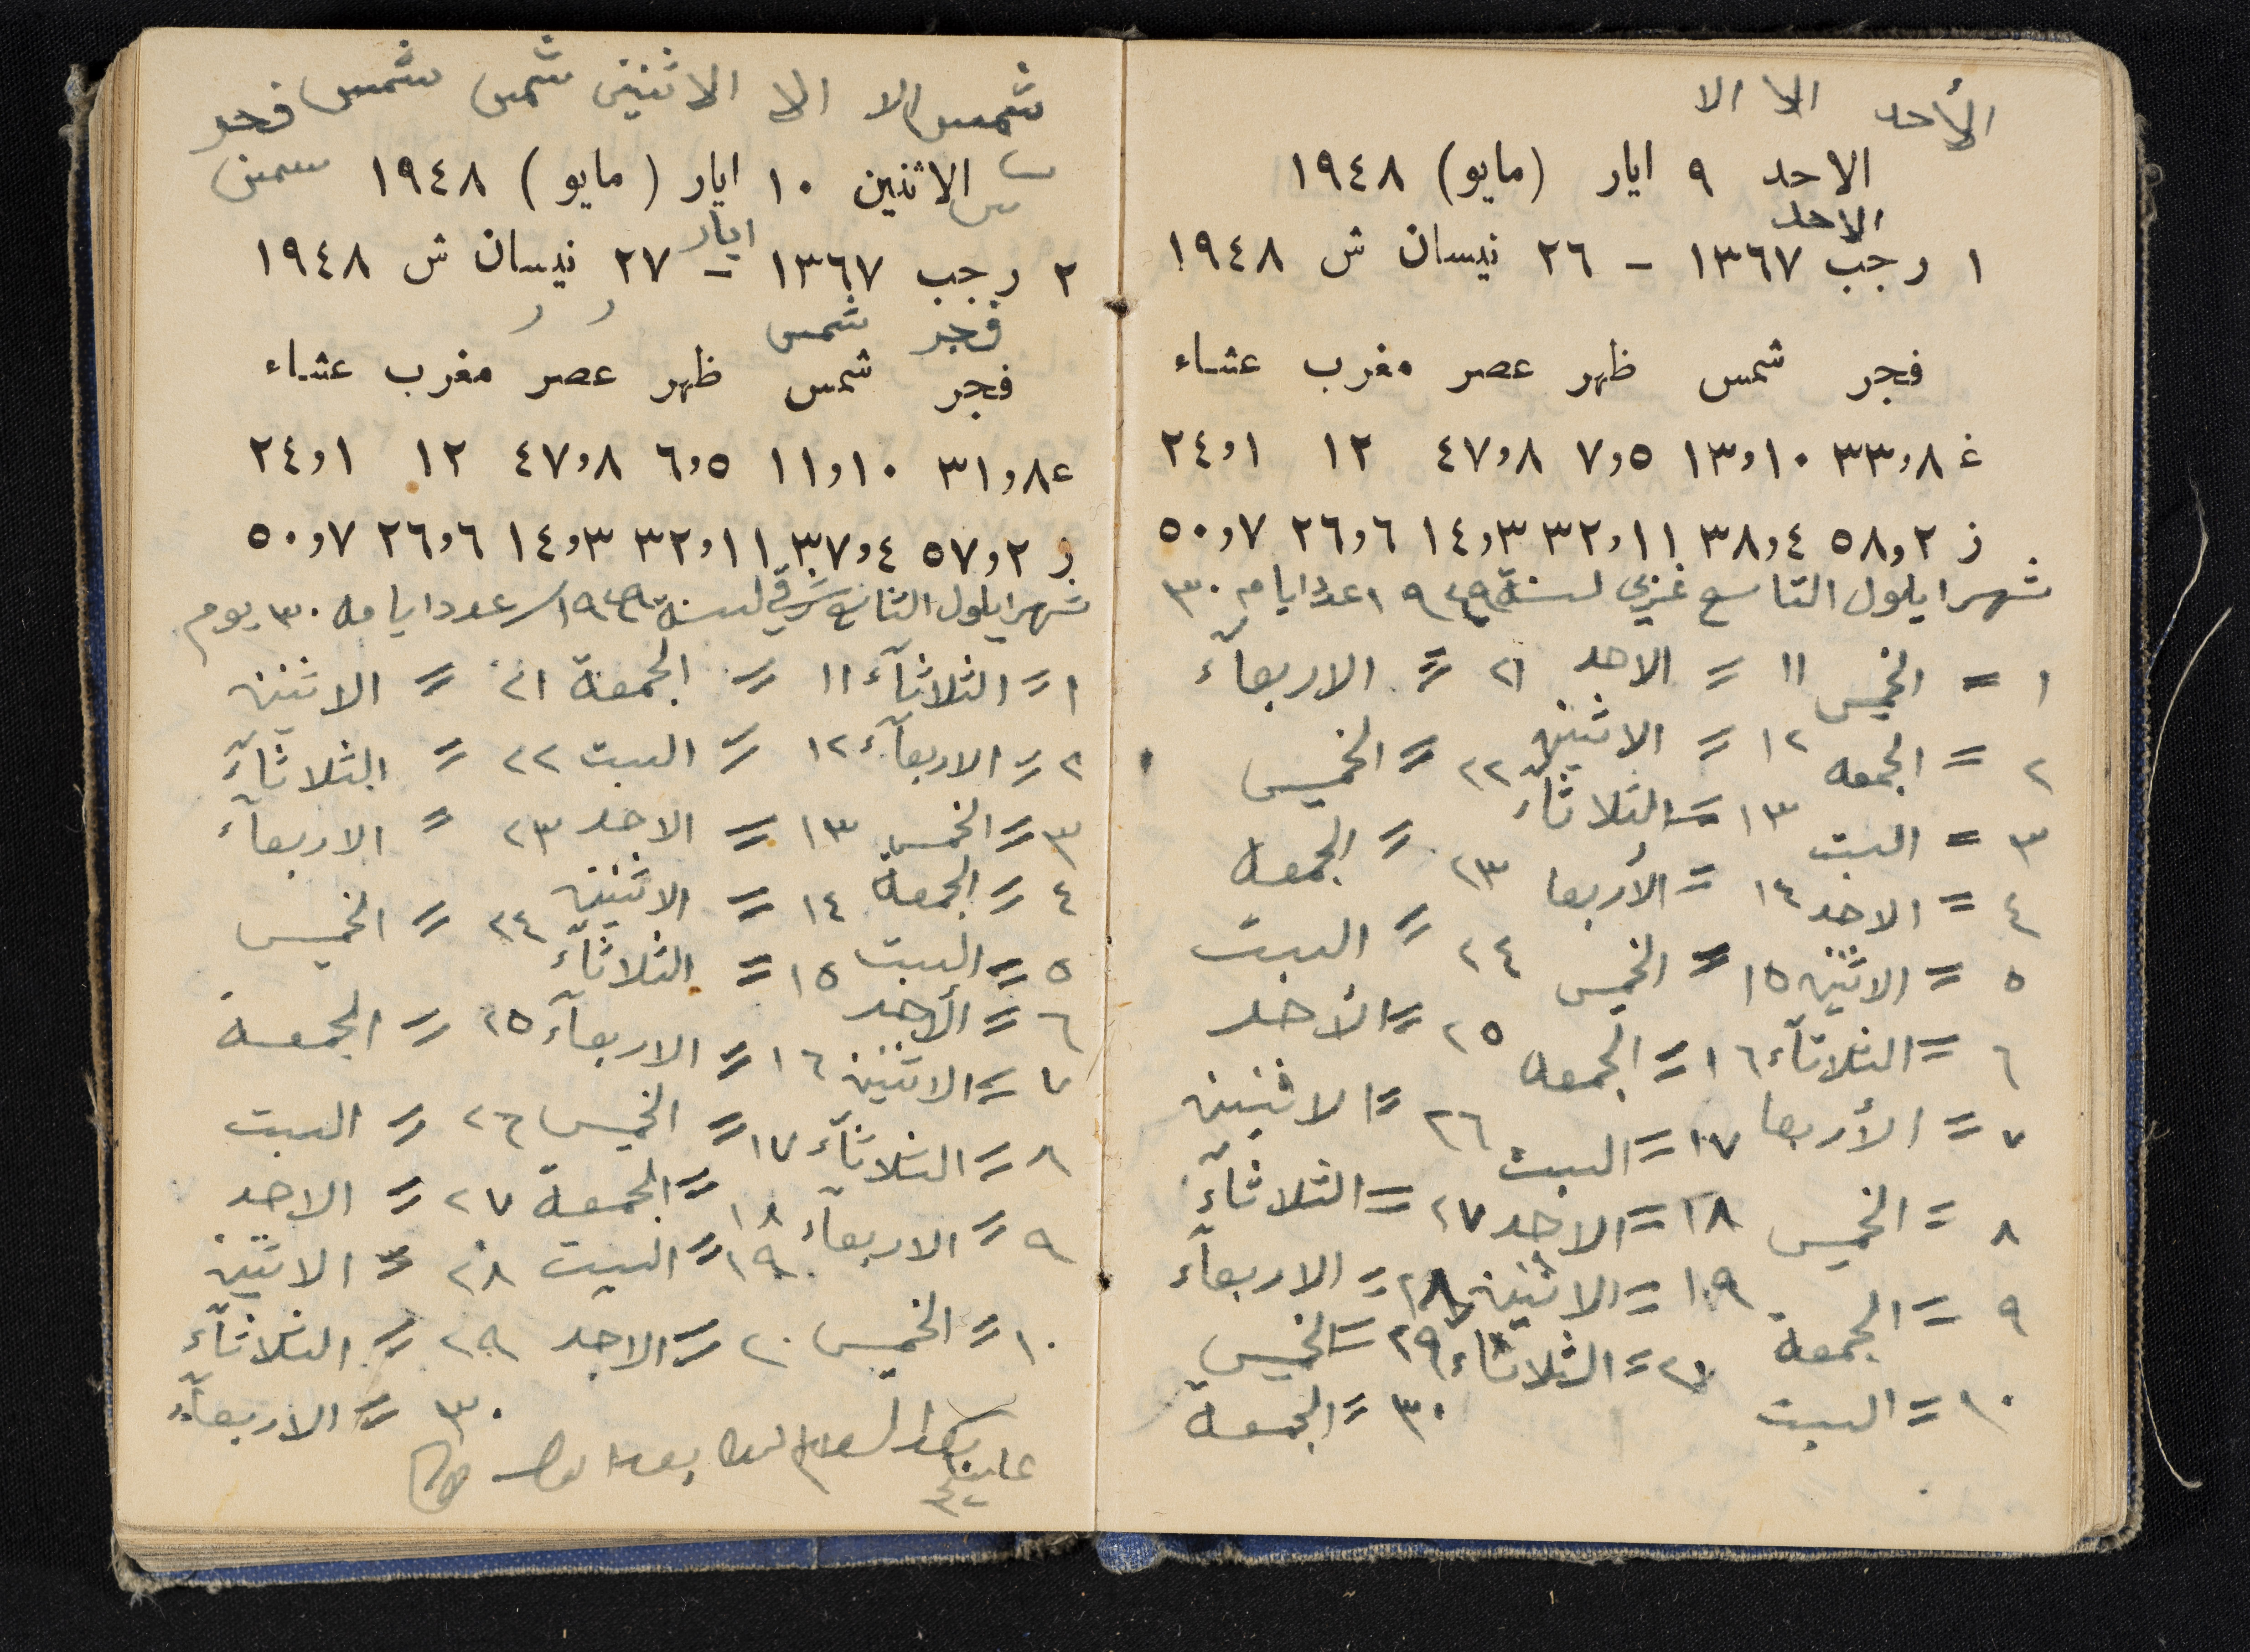 الأحد الا الا
الاحد ٩ ايار (مايو) ١٩٤٨
الاحد
١ رجب ١٣٦٧ - ٢٦ نيسان ش ١٩٤٨
فجر شمس ظهر عصر مغرب عشاء
غ ٣٣٫٨ ١٣٫١٠ ٧٫٥ ٤٧٫٨ ١٢ ٢٤٫١
ز ٥٨٫٢ ٣٨٫٤ ٣٢٫١١ ١٤٫٣ ٢٦٫٦ ٥٠٫٧
شهر ايلول التاسع غربي لسنة ١٩٤٩ عدد ايام ٣٠
١ = الخميس ١١ = الاحد ٢١ = الاربعآء
٢ = الجمعه ١٢ = الاثنين ٢٢ = الخميس
٣ = السبت ١٣ = الثلاثآء ٢٣ = الجمعة
٤ = الاحد ١٤ = الأربعا ٢٤ = السبت
٥ = الاثنين ١٥ = الخميس ٢٥ = الأحد
٦ = الثلاثآء ١٦ = الجمعه ٢٦ = الاثنين
٧ = الأربعا ١٧ = السبت ٢٧ = الثلاثآء
٨ = الخميس ١٨ = الاحد ٢٨ = الاربعآء
٩ = الجمعة ١٩ = الاثنين ٢٩ = الخميس
١٠ = السبت ٢٠ = الثلاثاء ٣٠ = الجمعة
شمس الا الا الاثنين شمس شمس فجر
الاثنين ١٠ ايار (مايو) ١٩٤٨
ايار
٢ رجب ١٣٦٧ - ٢٧ نيسان ش ١٩٤٨
فجر شمس
فجر شمس ظهر عصر مغرب عشاء
ع ٣١٫٨ ١١٫١٠ ٦٫٥ ٤٧٫٨ ١٢ ٢٤٫١
ز ٥٧٫٢ ٣٧٫٤ ٣٢٫١١ ١٤٫٣ ٢٦٫٦ ٥٠٫٧
شهر ايلول التاسع شرقي لسنة ١٩٤٩ عدد ايامه ٣٠ يوم
١ = الثلاثآء ١١ = الجمعة ٢١ = الاثنين
٢ = الاربعآء ١٢ = السبت ٢٢ = الثلاثآء
٣ = الخميس ١٣ = الاحد ٢٣ = الاربعآء
٤ = الجمعة ١٤ = الاثنين ٢٤ = الخميس
٥ = السبت ١٥ = الثلاثآء ٢٥ = الجمعة
٦ = الأحد ١٦ = الاربعآء ٢٦ = السبت
٧ = الاثنين ١٧ = الخميس ٢٧ = الاحد
٨ = الثلاثآء ١٨ = الجمعة ٢٨ = الاثنين
٩ = الاربعآء ١٩ = السبت ٢٩ = الثلاثآء
١٠ = الخميس ٢٠ = الاحد ٣٠ = الاربعآء
عليكم